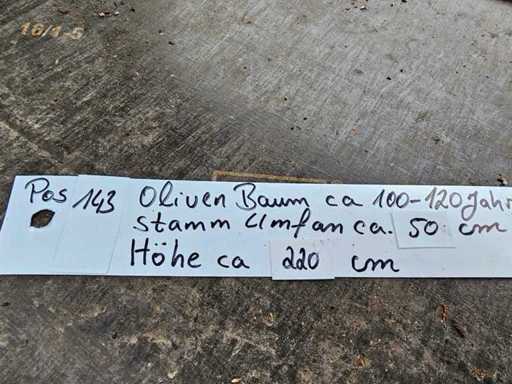 16/1-5
Pos 143 Oliven Baum ca 100-120 Jahr
stamm Umfan ca. 50 cm
Höhe ca 220 cm